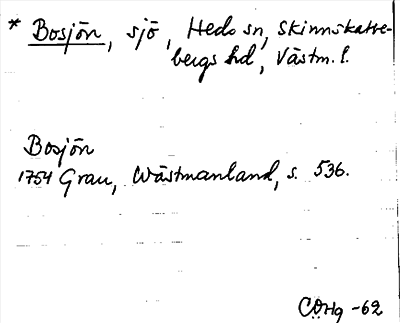 * Bosjön, sjö, Hedo sn, Skinnskatte-
bergs hd, Västm. l.
Bosjön
1754 Grau, Wästmanland, s. 536.
CÖHg -62